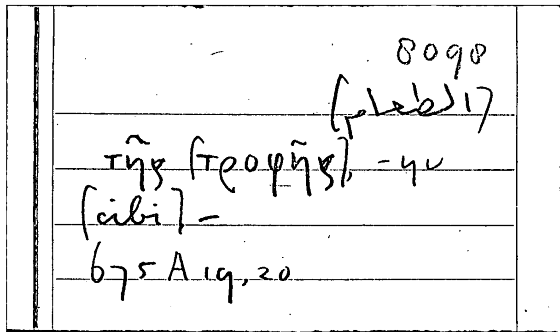 8098
[الطعام]
τῆς [τροφῆς], -ην
[cibi] -
675 A 19, 20